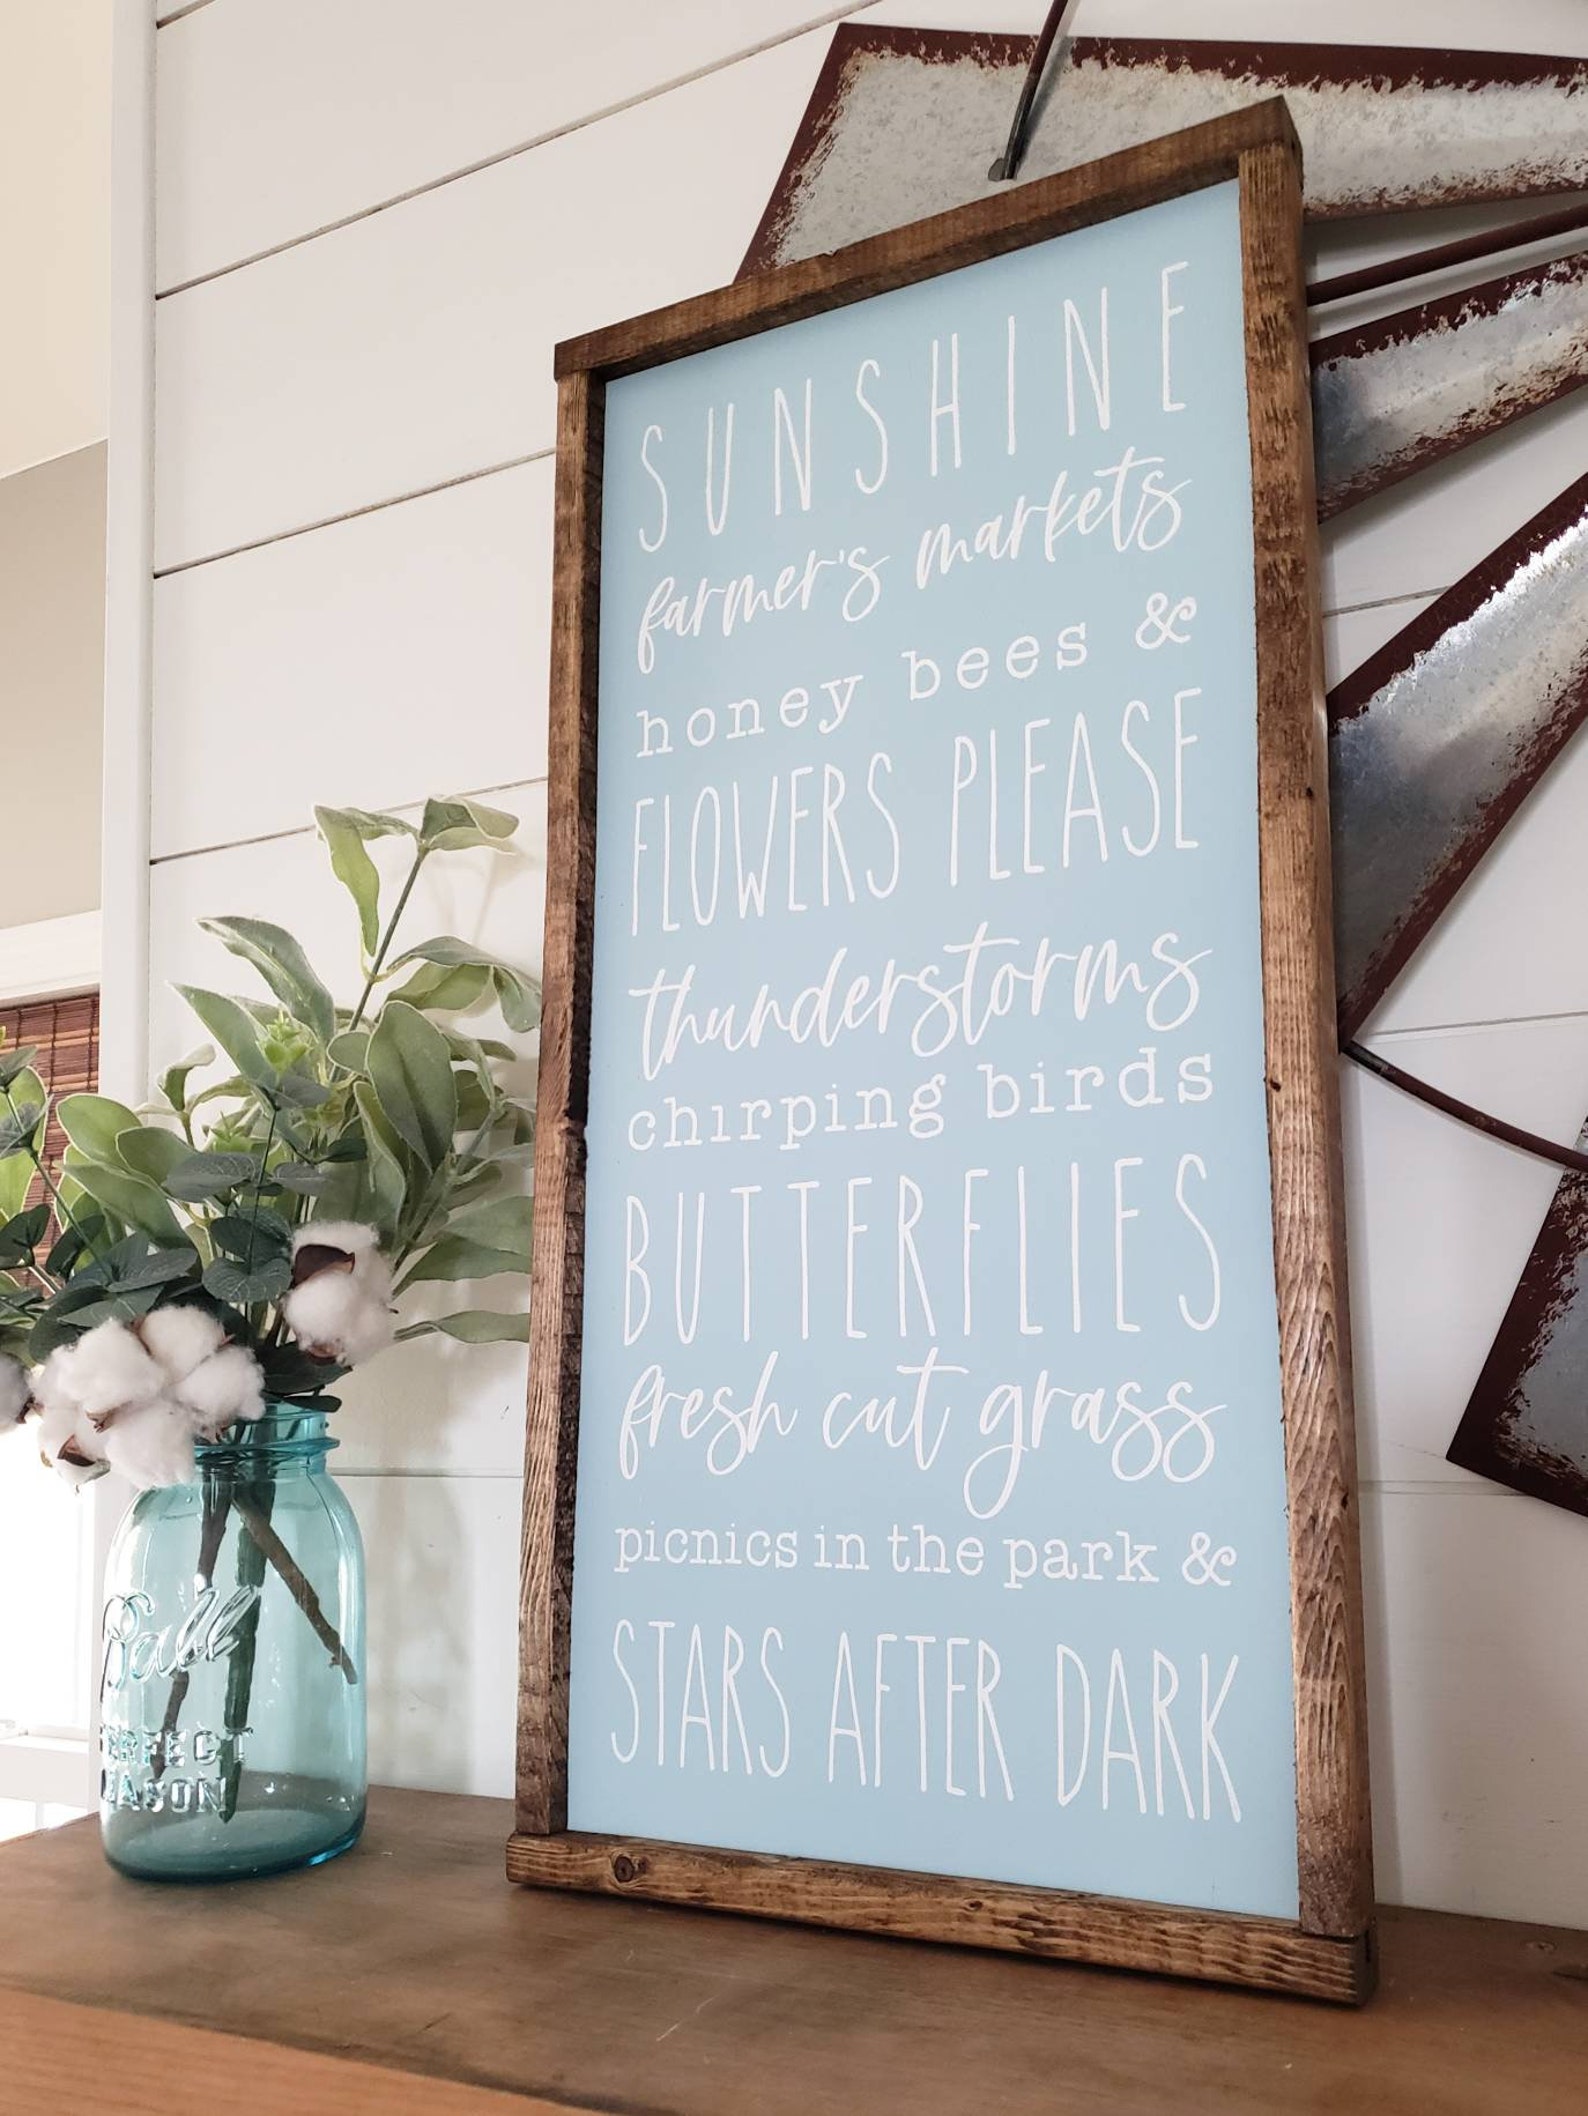 SUNSHINE
farmer's markets
honey bees &
FLOWERS PLEASE
thunderstorms
chirping birds
BUTTERFLIES
fresh cut grass
picnics in the park &
STARS AFTER DARK
Ball
PERFECT
MASON